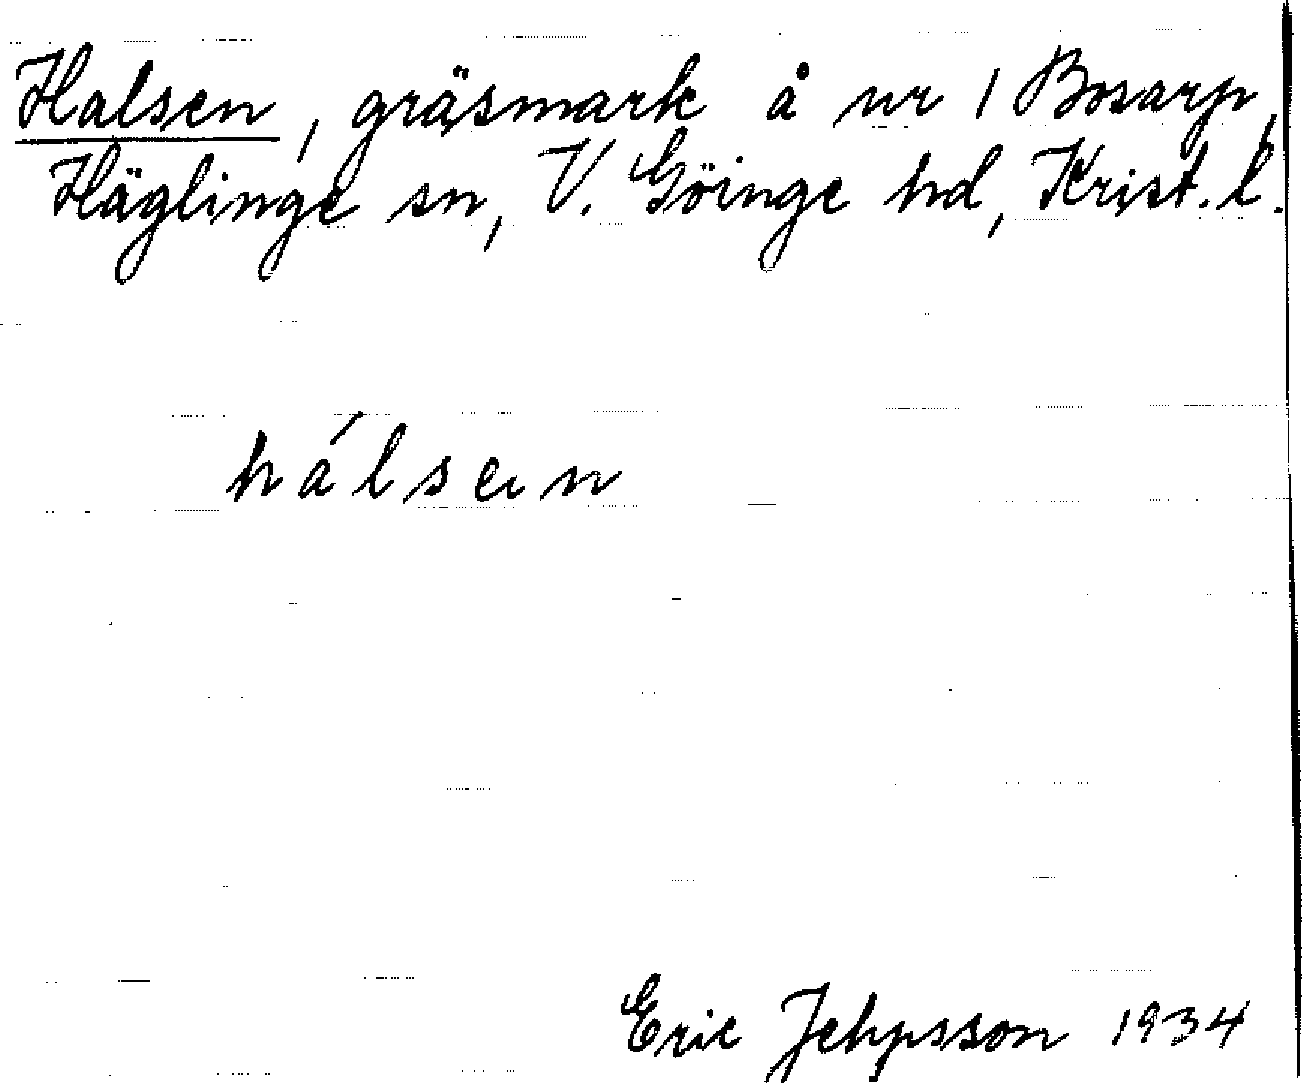 Halsen, gräsmark å nr 1 Bosarp,
Häglinge sn, V. Göinge hd, Krist. l.
hálsen
Eric Jehpsson 1934